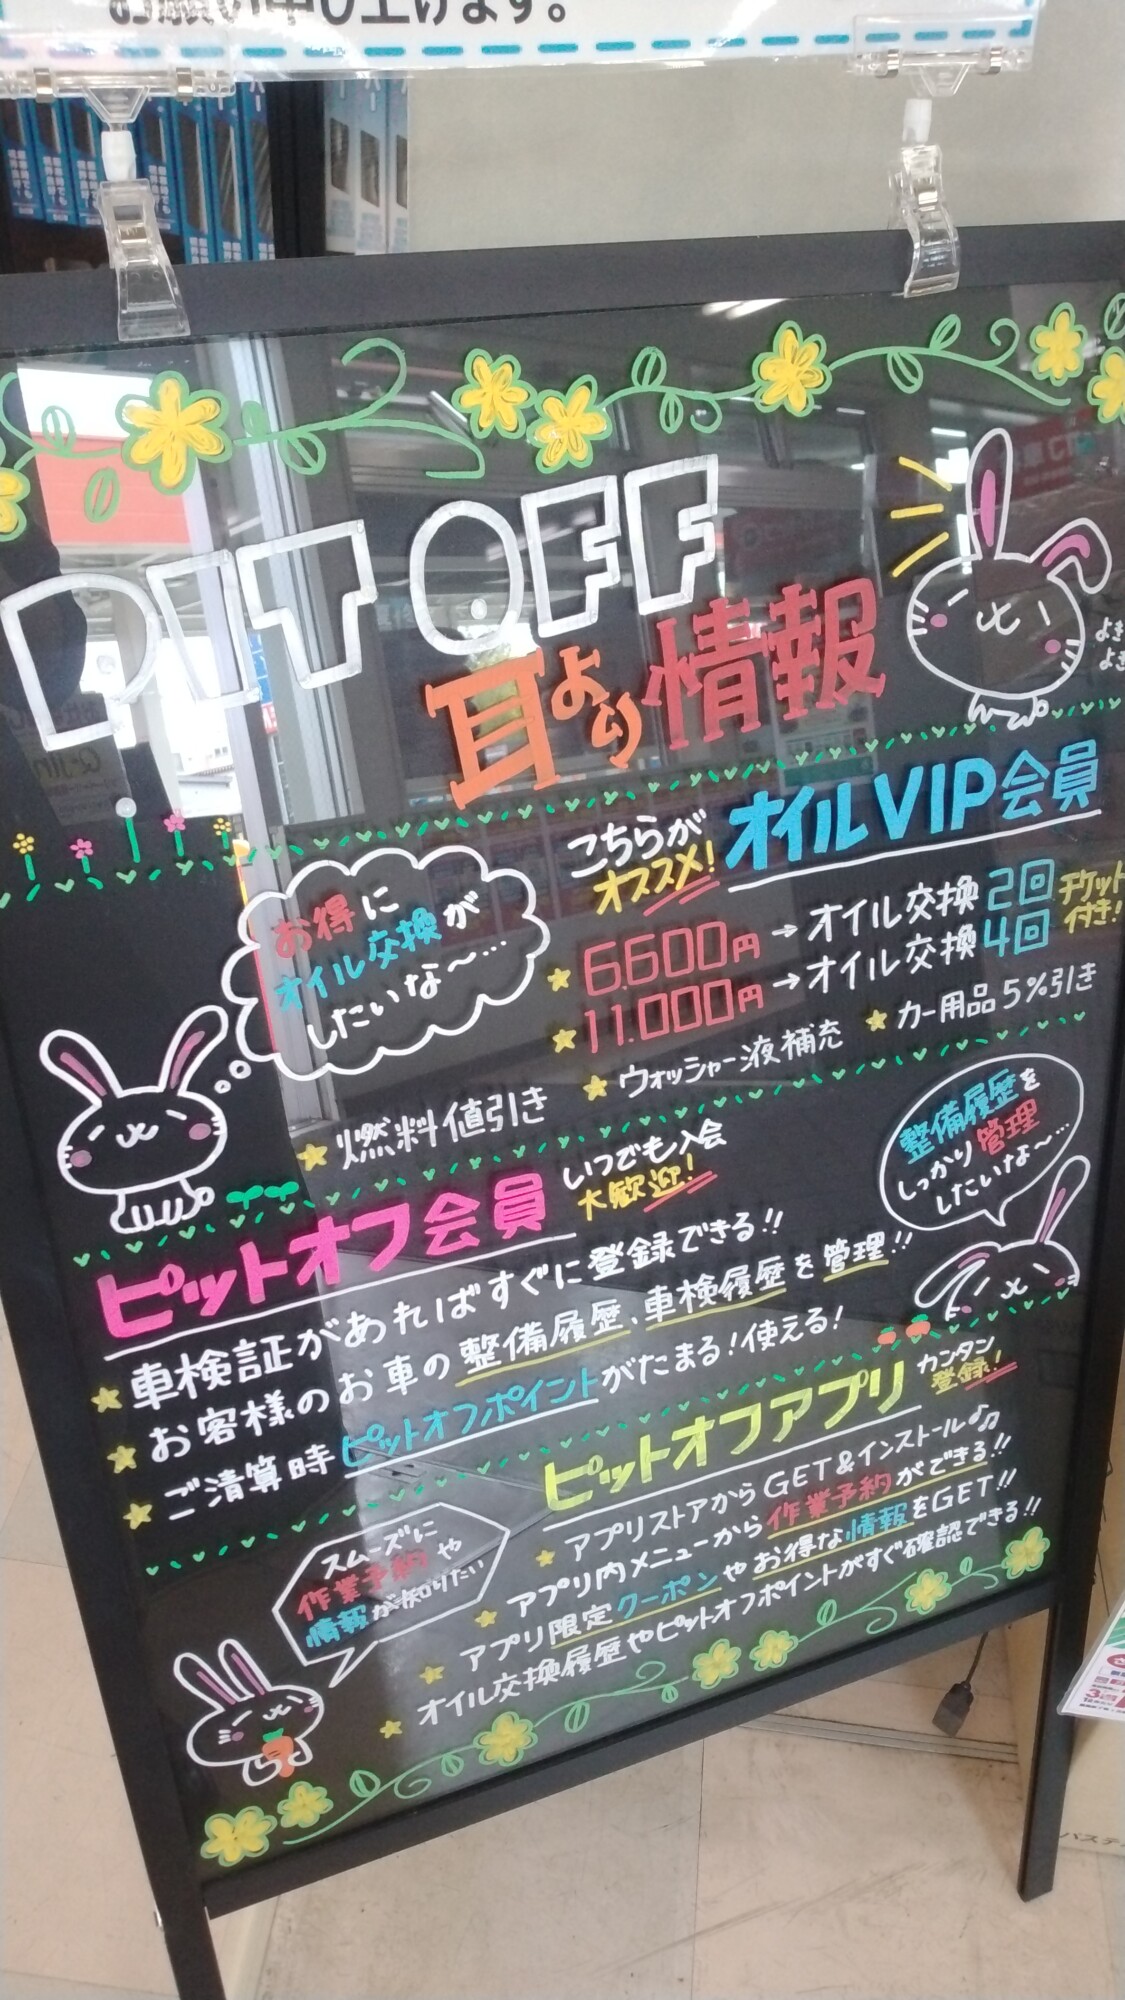 お願い申し上げます。
PIT OFF
耳より情報
よき
よき
お得に
オイル交換が
したいな〜…
こちらが
オススメ!
オイルVIP会員
6,600円→オイル交換2回
11,000円→オイル交換4回
チケット
付き!
燃料値引き
ウォッシャー液補充
カー用品5%引き
ピットオフ会員
いつでも入会
大歓迎!
整備履歴を
しっかり管理
したいな〜…
車検証があればすぐに登録できる!!
お客様のお車の整備履歴、車検履歴を管理!!
ご清算時ピットオフポイントがたまる!使える!
ピットオフアプリ
カンタン
登録!
スムーズに
作業予約や
情報が知りたい
アプリストアからGET&インストール♪♫
アプリ内メニューから作業予約ができる!!
アプリ限定クーポンやお得な情報をGET!!
オイル交換履歴やピットオフポイントがすぐ確認できる!!